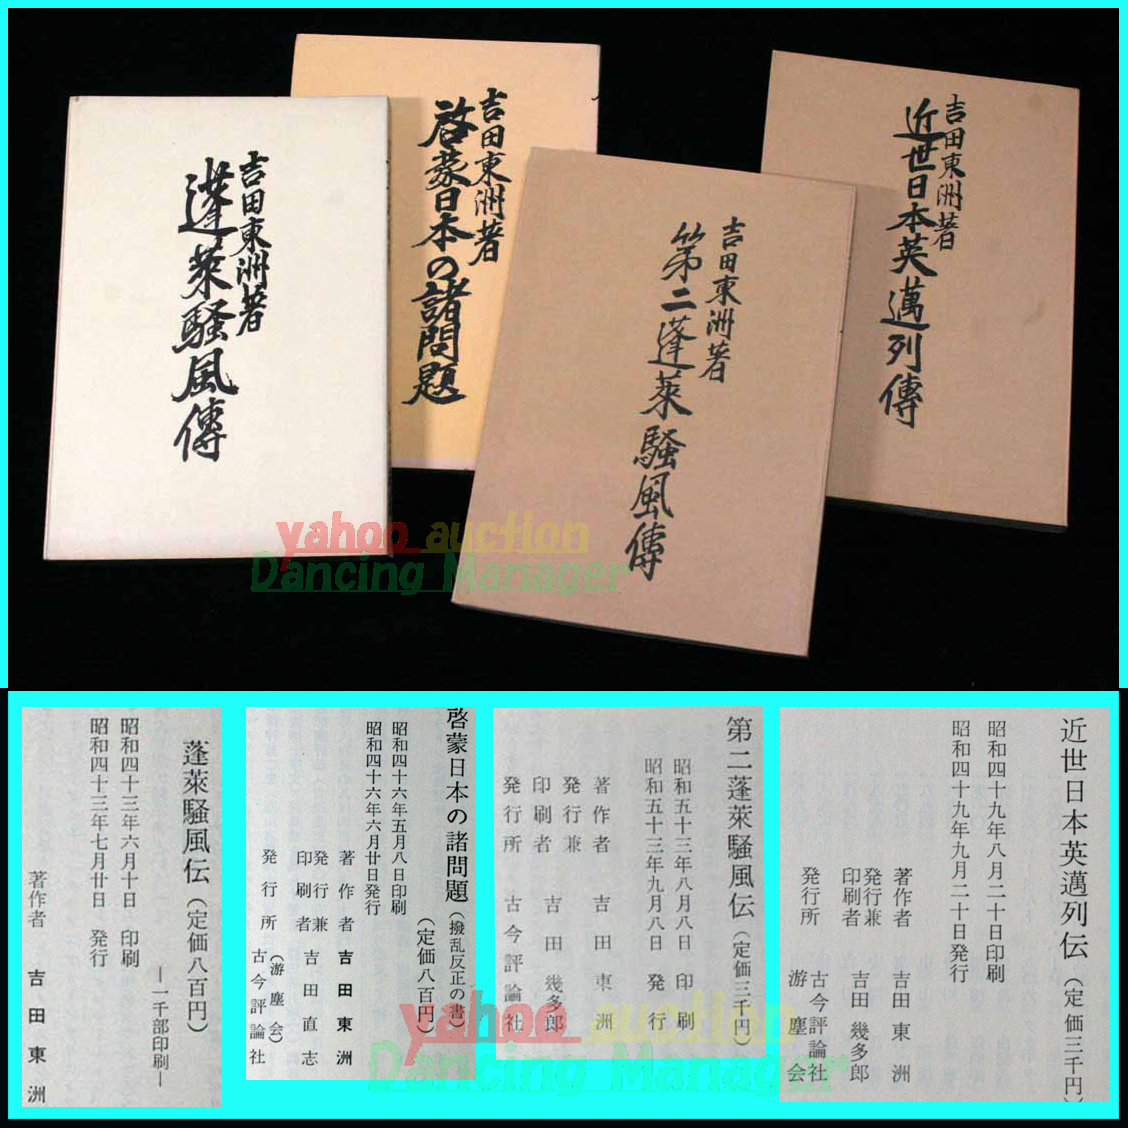 吉田東洲著
蓬萊騒風傳
吉田東洲著
啓蒙日本の諸問題
吉田東洲著
第二蓬萊騒風傳
吉田東洲著
近世日本英邁列傳
yahoo auction
Dancing Manager
蓬萊騒風伝（定価八百円）
―一千部印刷―
昭和四十三年六月十日 印刷
昭和四十三年七月廿日 発行
著作者 吉田東洲
啓蒙日本の諸問題（撥乱反正の書）
（定価八百円）
昭和四十六年五月八日印刷
昭和四十六年六月廿日発行
著作者 吉田東洲
発行兼
印刷者 吉田直志
（游塵会）
発行所 古今評論社
第二蓬萊騒風伝（定価三千円）
昭和五十三年八月八日 印刷
昭和五十三年九月八日 発行
著作者 吉田東洲
発行兼
印刷者 吉田幾多郎
発行所 古今評論社
近世日本英邁列伝（定価三千円）
昭和四十九年八月二十日印刷
昭和四十九年九月二十日発行
著作者 吉田東洲
発行兼
印刷者 吉田幾多郎
発行所 古今評論社
游塵会
yahoo auction
Dancing Manager